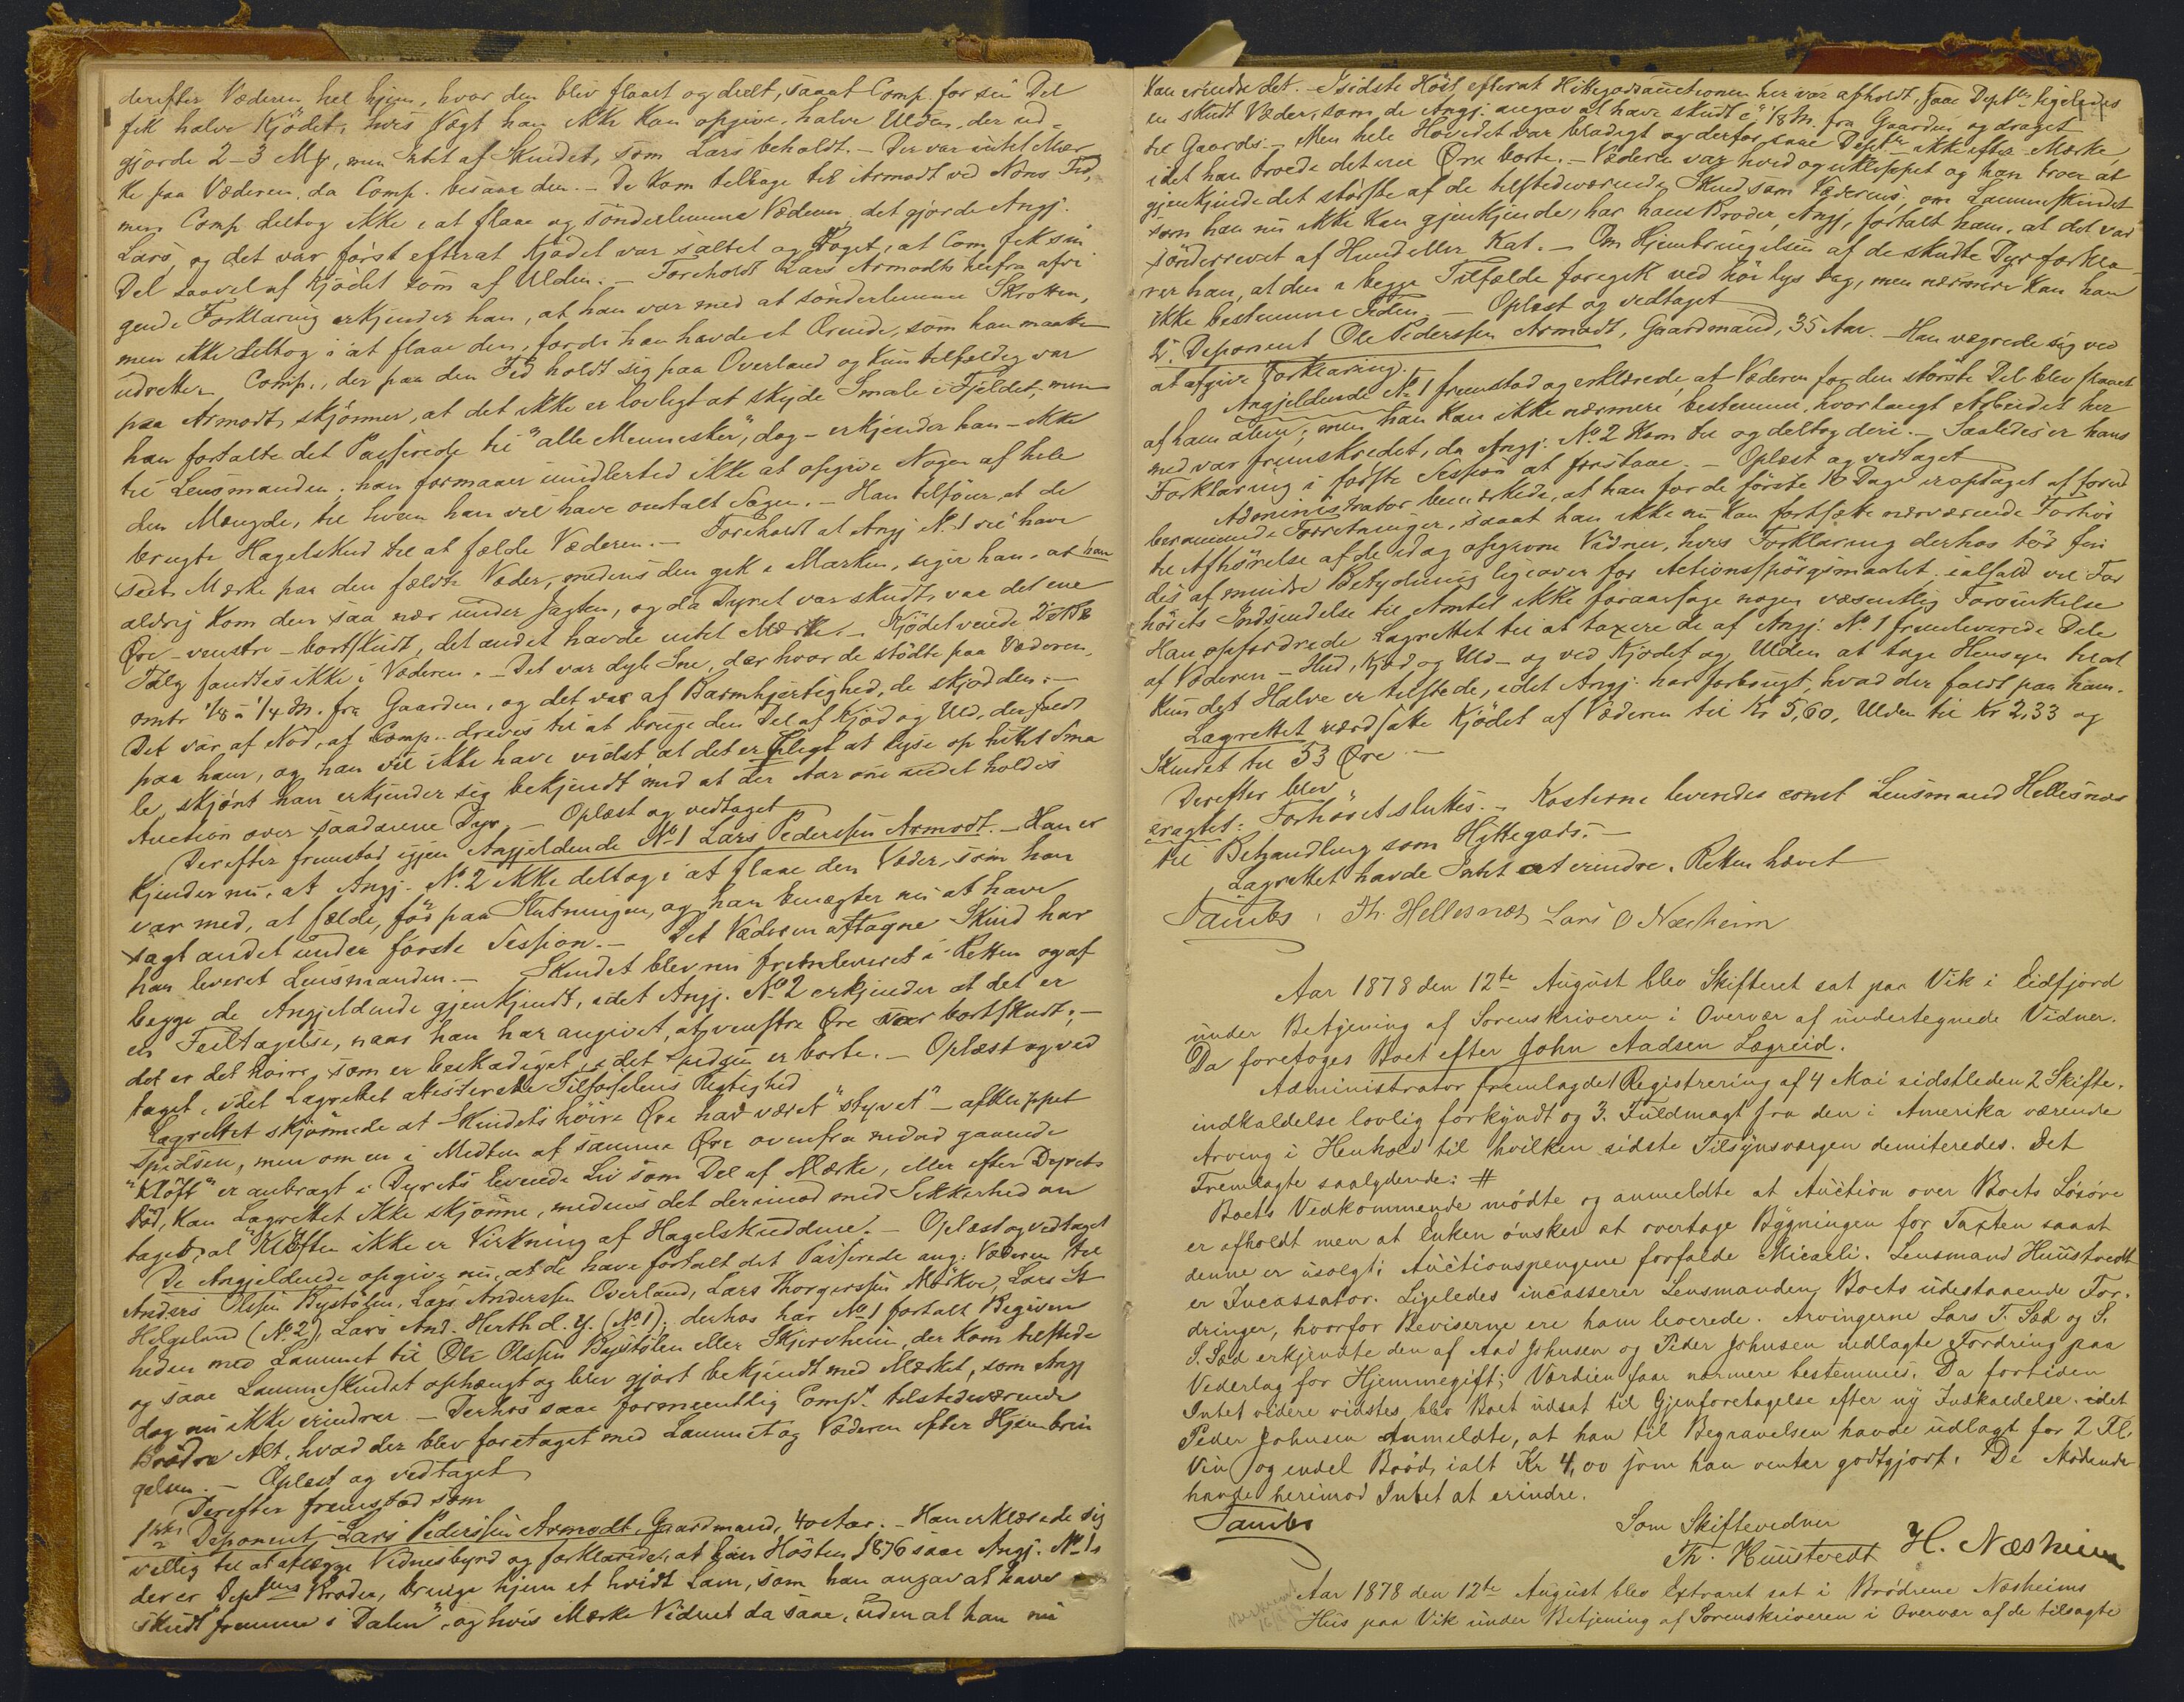 derefter Væderen hel hjem, hvor den blev flaaet og deelt, saaat Comp. for sin Del
fik halve Kjödet, hvis Vægt han ikke kan opgive, halve Ulden, der ud-
gjorde 2-3 Mk, men Intet af Skindet, som Lars beholdt. - Der var intet Mær
ke paa Væderen, da Comp. besaae den. - De kom tilbage til Armodt ved Nons Tid,
men Comp deltog ikke i at flaae og sönderlemme Væderen, det gjorde Angj.
Lars, og det var först efterat Kjödet var saltet og Höget, at Com, fik sin
Del saavel af Kjödet som af Ulden. - Foreholdt Lars Armodts herfra afvi
gende Forklaring erkjender han, at han var med at sönderlemme Skrotten,
men ikke deltog i at flaae den, fordi han havde et Ærinde, som han maatte
udrette. Comp., der paa den Tid holdt sig paa Overland og kun tilfældig var
paa Armodt, skjönner, at det ikke er lovligt at skyde Smale i Fjeldet, men
han fortalte det Passerede til "alle Mennesker", dog - erkjender han - ikke
til Lensmanden; han formaaer imidlertid ikke at opgive Nogen af hele
den Mængde, til hvem han vil have omtalt Sagen. - Han tilföier, at de
brugte Hagelskud til at fælde Væderen. - Foreholdt at Angj No 1 vil have
seet Mærke paa den fældte Væder, medens den gik i Marken, siger han, at han
aldrig kom den saa nær under Jagten, og da Dyret var skudt, var det ene
Öre - venstre - bortskudt, det andet havde intet Mærke. - Kjödet veiede
Talg fandtes ikke i Væderen. - Det var dyb Sne, der hvor de stödte paa Væderen,
omtr 1/8 à 1/4 M. fra Gaarden, og det var af Barmhjertighed, de skjöd den. -
Det var af Nöd, at Comp. dreves til at bruge den Del af Kjöd og Uld, der faldt
paa ham, og han vil ikke have vidst, at det er Pligt at lyse op hittet Sma
le, skjönt han erkjender sig bekjendt med at der Aar om andet holdes
Auction over saadanne Dyr. - Oplæst og vedtaget
Derefter fremstod igjen Angjeldende No 1 Lars Pederssen Armodt. - Han er
kjender nu, at Angj. No. 2 ikke deltog i at flaae den Væder, som han
var med, at fælde, för paa Slutningen, og han benægter nu at have
sagt andet under förste Session. - Det Væderen aftagne Skind har
han leveret Lensmanden. - Skindet blev nu fremleveret i Retten og af
begge de Angjeldende gjenkjendt, idet Angj. No 2 erkjender at det er
en Feiltagelse, naar han har angivet, at venstre Öre var bortskudt; -
det er det höire, som er beskadiget, idet Spidsen er borte. - Oplæst og ved
taget, idet Lagrettet attesterede Tilförselens Rigtighed
Lagrettet skjönnede at Skindets höire Öre har været "styvet" - afklippet
Spidsen, men om en i Midten af samme Öre ovenfra nedad gaaende
"Klöft" er anbragt i Dyrets levende Liv som Del af Mærke, eller efter Dyrets
Död, kan Lagrettet ikke skjönne, medens det derimod med Sikkerhed an
tages, at Klöften ikke er Virkning af Hagelskuddene. - Oplæst og vedtaget
De Angjeldende opgive nu, at de have fortalt det Passerede ang: Væderen til
Anders Olssen Bystölen, Lars Anderssen Overland, Lars Thorgerssen Mörkve, Lars
Helgeland (No. 2), Lars And. Herth d. y. (No 1); derhos har No 1 fortalt Begiven
heden med Lammet til Ole Olssen Bystölen eller Skjervheim, der kom tilstede
og saae Lammeskindet ophængt og blev gjort bekjendt med Mærket, som Angj
dog nu ikke erindrer. - Derhos saae formeentlig Comp. tilstedeværende
Brödre Alt, hvad der blev foretaget med Lammet og Væderen efter Hjembrin
gelsen. - Oplæst og vedtaget
Derefter fremstod som
1ste Deponent Lars Pederssen Armodt, Gaardmand, 40 Aar. - Han erklærede sig
villig til at aflægge Vidnesbyrd og forklarede, at han Hösten 1876 saae Angj. No 1,
der er Deptens Broder, bringe hjem et hvidt Lam, som han angav at have
skudt "fremme i Dalen", og hvis Mærke Vidnet da saae, uden at han nu
kan erindre det. - I sidste Höst, efterat Hittegodsauctionen her var afholdt, saae Depten ligeledes
en skudt Væder, som de Angj. angav at have skudt i 1/8 M. fra Gaarden og draget
til Gaards. - Men hele Hovedet var blodigt og derfor saae Depten ikke efter Mærke,
idet han troede det ene Öre borte. - Væderen var hvid og uklippet og han troer at
gjenkjende det störste af de tilstedeværende Skind som Væderens; om Lammeskindet
som han nu ikke kan gjenkjende, har hans Broder, Angj, fortalt ham, at det var
sönderrevet af Hund eller Kat. - Om Hjembringelsen af de skudte Dyr forkla-
rer han, at den i begge Tilfælde foregik ved höi lys Dag, men nærmere kan han
ikke bestemme Tiden. - Oplæst og vedtaget
2. Deponent Ole Pederssen Armodt, Gaardmand, 35 Aar. - Han vægrede sig ved
at afgive Forklaring.
Angjeldende No 1 fremstod og erklærede, at Væderen for den störste Del blev flaaet
af ham alene; men han kan ikke nærmere bestemme, hvorlangt Arbeidet her
med var fremskredet, da Angj. No. 2 kom til og deltog deri. - Saaledes er hans
Forklaring i förste Session at forstaae. - Oplæst og vedtaget
Administrator bemærkede, at han for de förste 10 Dage er optaget af forud
berammede Forretninger, saaat han ikke nu kan fortsætte nærværende Forhör
til Afhörelse af de idag opgivne Vidner, hvis Forklaring derhos tör fin
des af mindre Betydning ligeover for Actionsspörgsmaalet; ialfald vil For
hörets Indsendelse til Amtet ikke foraarsage nogen væsentlig Forsinkelse
Han opfordrede Lagrettet til at taxere de af Angj. No. 1 fremleverede Dele
af Væderen - Hud, Kjöd og Uld - og ved Kjödet og Ulden at tage Hensyn til at
kun det Halve er tilstede, idet Angj. har forbrugt, hvad der faldt paa ham.
Lagrettet værdsatte Kjödet af Væderen til Kr 5,60, Ulden til Kr 2,33 og
Skindet til 53 Öre. -
Derefter blev
eragtet: Forhöret sluttes. - Kosterne leveredes const Lensmand Hellesnæs
til Behandling som Hittegods. -
Lagrettet havde Intet at erindre. Retten hævet
Tambs. Th. Hellesnæs Lars O Næsheim
Aar 1878 den 12te August blev Skifteret sat paa Vik i Eidfjord
under Betjening af Sorenskriveren i Overvær af undertegnede Vidner.
Da foretoges Boet efter John Aadsen Lægreid.
Administrator fremlagde 1 Registrering af 4 Mai sidstleden 2 Skifte-
indkaldelse lovlig forkyndt og 3. Fuldmagt fra den i Amerika værende
Arving i Henhold til hvilken sidste Tilsynsværgen demiteredes. Det
Fremlagte saalydende: #
Boets Vedkommende mödte og anmeldte at Auction over Boets Lösöre
er afholdt men at Enken önsker at overtage Bygningen for Taxten saaat
denne er usolgt; Auctionspengene forfalde Micaeli. Lensmand Huustvedt
er Incassator. Ligeledes incasserer Lensmanden Boets udestaaende For-
dringer, hvorfor Beviserne ere ham leverede. Arvingerne Lars T. Sæd og S.
S. Sæd erkjendte den af Aad Johnsen og Peder Johnsen nedlagte Fordring paa
Vederlag for Hjemmegift; Værdien faar nærmere bestemmes. Da fortiden
Intet videre vidstes, blev Boet udsat til Gjenforetagelse efter ny Indkaldelse. idet
Peder Johnsen anmeldte, at han til Begravelsen havde udlagt for 2 Fl.
Vin og endel Bröd, ialt Kr 4,00 som han venter godtgjort. De Mödende
havde herimod Intet at erindre.
Tambs
Som Skiftevidner
Th. Huustvedt H. Næsheim
Aar 1878 den 12te August blev Extraret sat i Brödrene Næsheims
Huis paa Vik under Betjening af Sorenskriveren i Overvær af de tilsagte